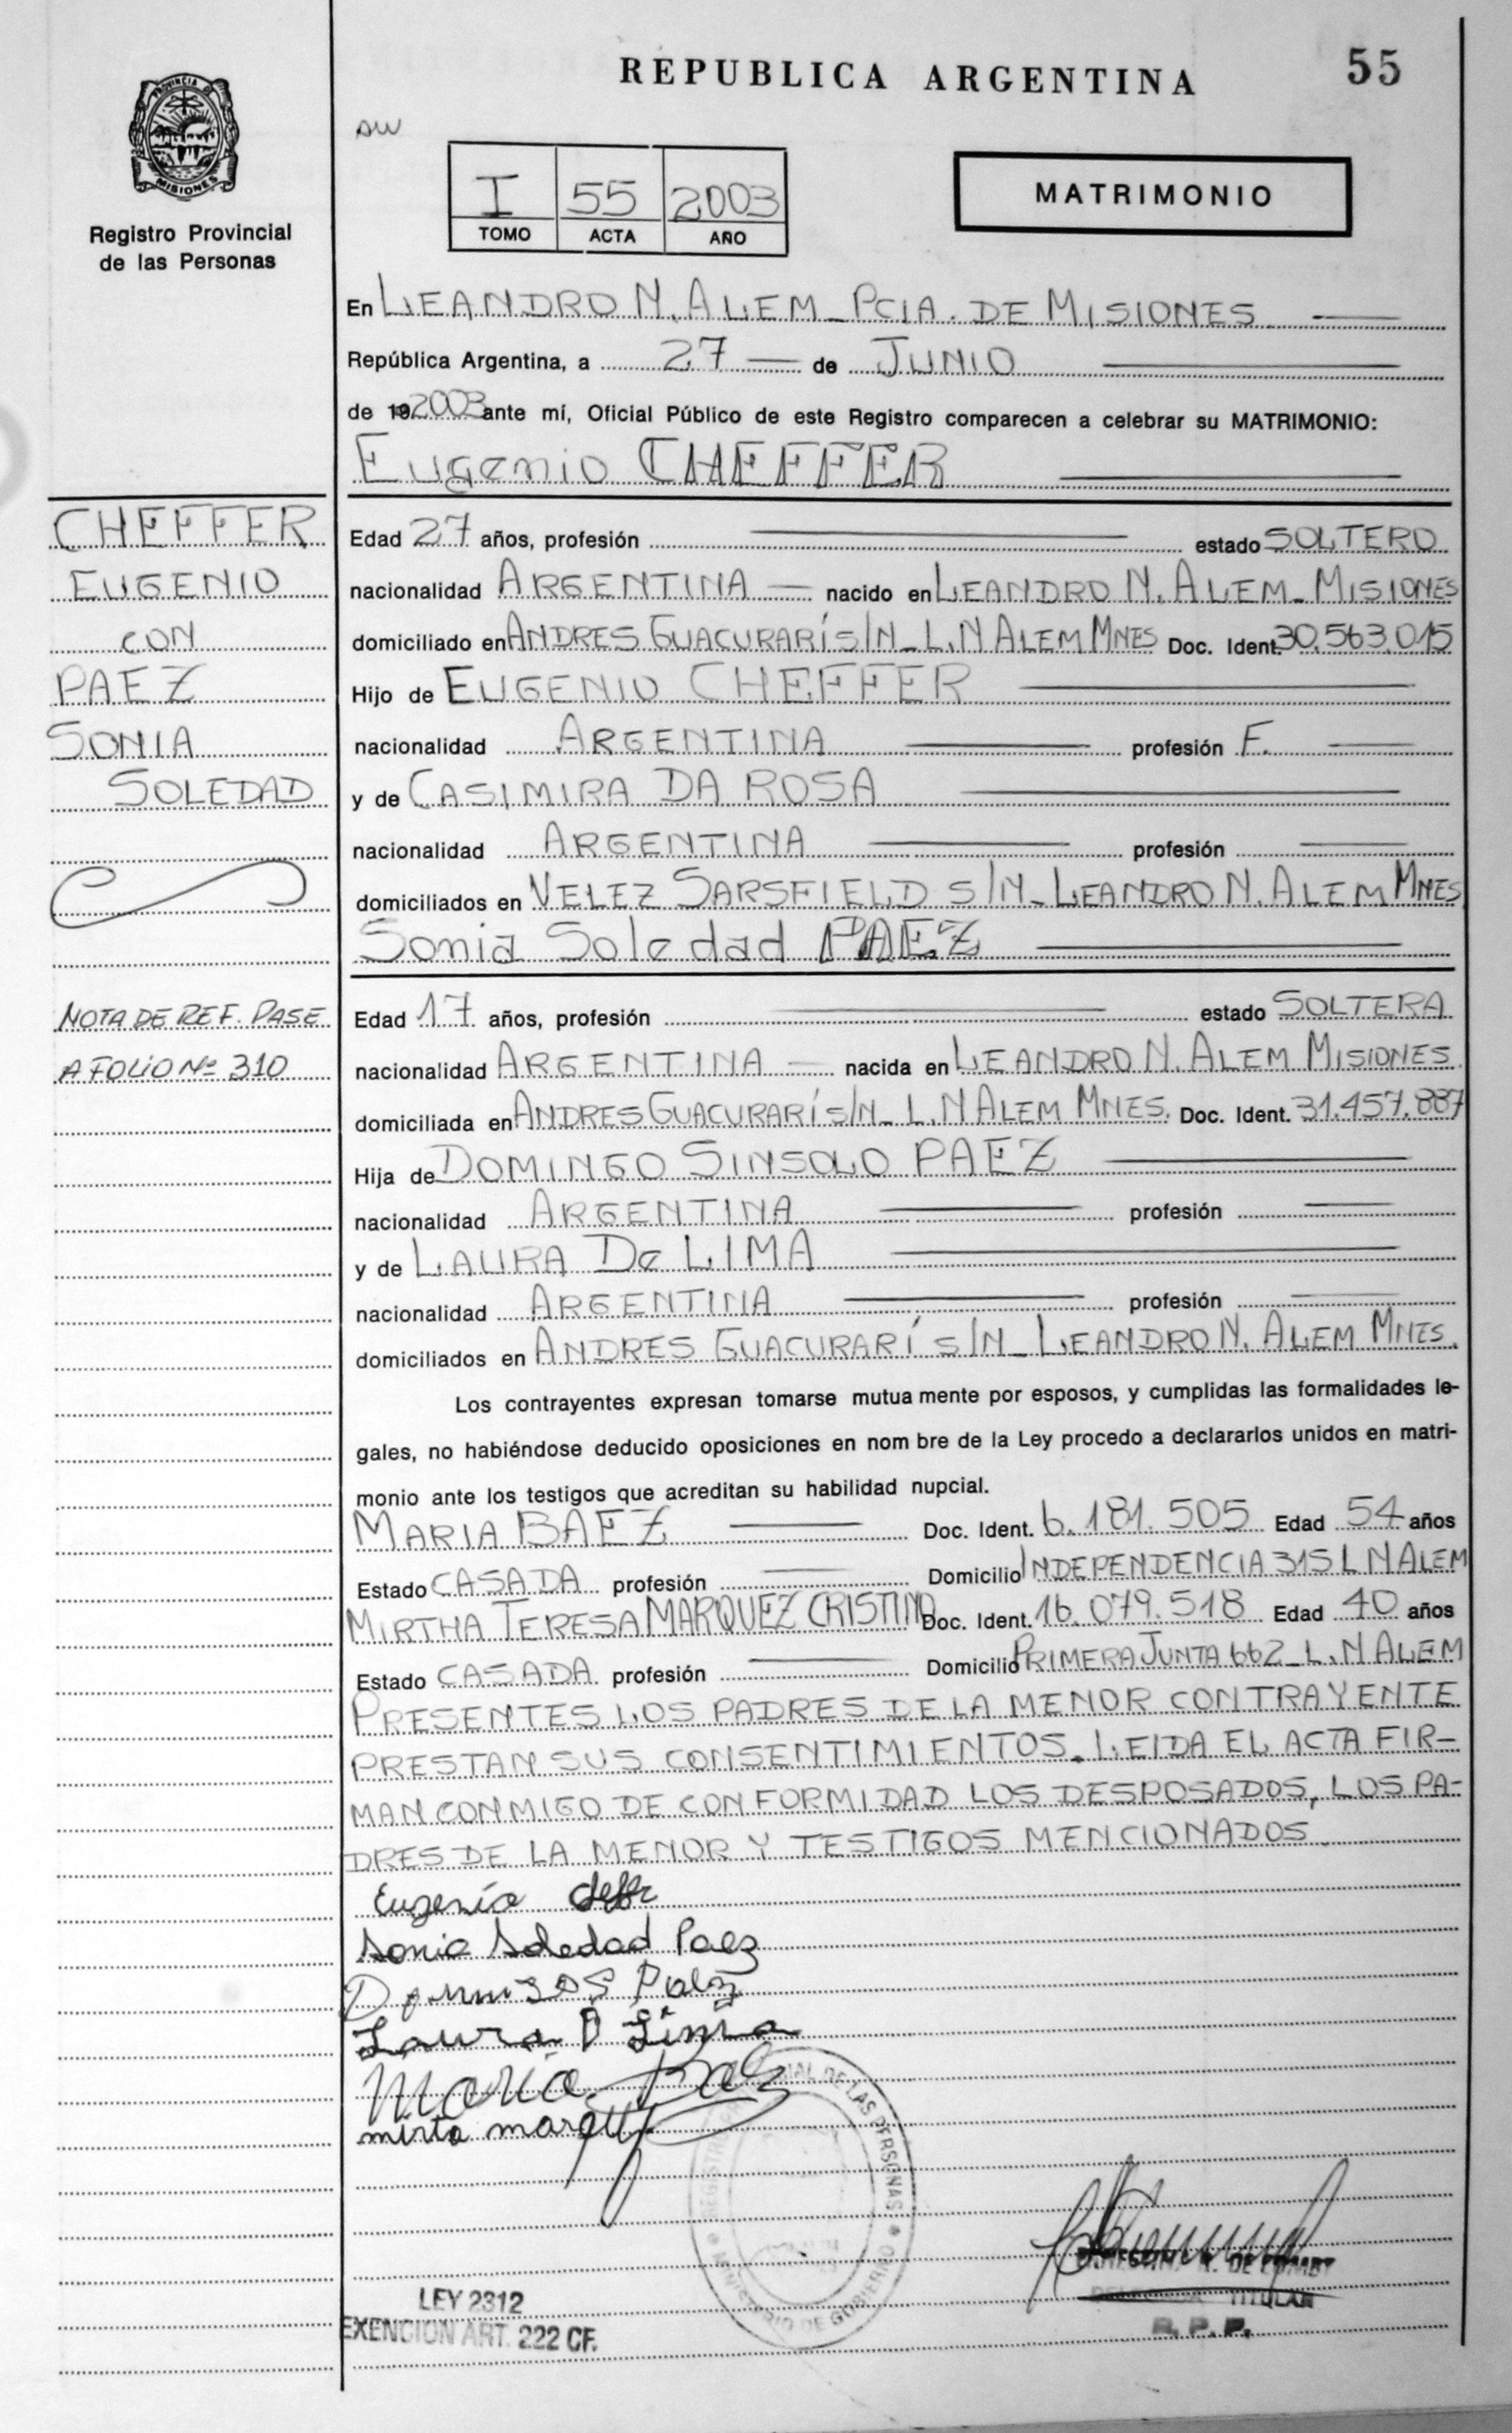 REPUBLICA ARGENTINA 55
PROVINCIA D
MISIONES
Registro Provincial
de las Personas
I 55 2003
TOMO ACTA AÑO
MATRIMONIO
En LEANDRO N. ALEM_PCIA. DE MISIONES
República Argentina, a 27 de JUNIO
de 19 2003 ante mí, Oficial Público de este Registro comparecen a celebrar su MATRIMONIO:
Eugenio CHEFFER
CHEFFER
EUGENIO
CON
PAEZ
SONIA
SOLEDAD
NOTA DE REF. PASE
A FOLIO Nº 310
Edad 27 años, profesión estado SOLTERO
nacionalidad ARGENTINA nacido en LEANDRO N. ALEM_MISIONES
domiciliado en ANDRES GUACURARÍ S/N_L.N ALEM MNES Doc. Ident. 30.563.015
Hijo de EUGENIO CHEFFER
nacionalidad ARGENTINA profesión F.
y de CASIMIRA DA ROSA
nacionalidad ARGENTINA profesión
domiciliados en VELEZ SARSFIELD S/N_LEANDRO N. ALEM MNES
Sonia Soledad PAEZ
Edad 17 años, profesión estado SOLTERA
nacionalidad ARGENTINA nacida en LEANDRO N. ALEM MISIONES
domiciliada en ANDRES GUACURARÍ S/N_L.N ALEM MNES. Doc. Ident. 31.457.887
Hija de DOMINGO SINSOLO PAEZ
nacionalidad ARGENTINA profesión
y de LAURA De LIMA
nacionalidad ARGENTINA profesión
domiciliados en ANDRES GUACURARÍ S/N_LEANDRO N. ALEM MNES.
Los contrayentes expresan tomarse mutua mente por esposos, y cumplidas las formalidades le-
gales, no habiéndose deducido oposiciones en nom bre de la Ley procedo a declararlos unidos en matri-
monio ante los testigos que acreditan su habilidad nupcial.
MARIA BAEZ Doc. Ident. 6.181.505 Edad 54 años
Estado CASADA profesión Domicilio INDEPENDENCIA 315 L N ALEM
MIRTHA TERESA MARQUEZ CRISTINO Doc. Ident. 16.079.518 Edad 40 años
Estado CASADA profesión Domicilio PRIMERA JUNTA 662_L.N ALEM
PRESENTES LOS PADRES DE LA MENOR CONTRAYENTE
PRESTAN SUS CONSENTIMIENTOS. LEIDA EL ACTA FIR-
MAN CONMIGO DE CONFORMIDAD LOS DESPOSADOS, LOS PA-
DRES DE LA MENOR Y TESTIGOS MENCIONADOS.
Eugenio
Sonia Soledad Paez
Paez
Laura D Lima
Maria Baez
mirta marquez
DE LAS PERSONAS
MINISTERIO DE GOBIERNO
TITULAR
R. P. P.
LEY 2312
EXENCION ART. 222 CF.